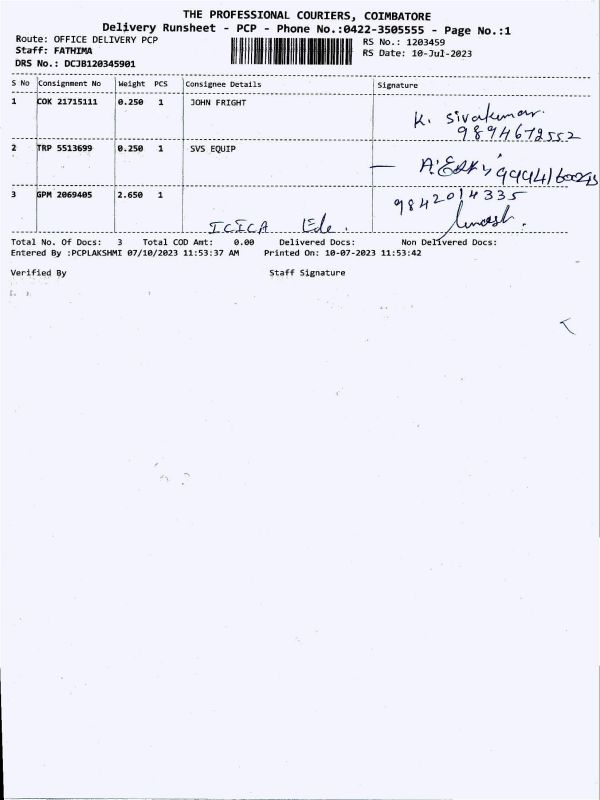 THE PROFESSIONAL COURIERS, COIMBATORE
Delivery Runsheet - PCP - Phone No.:0422-3505555 - Page No.:1
Route: OFFICE DELIVERY PCP
Staff: FATHIMA
DRS No.: DCJB120345901
RS No.: 1203459
RS Date: 10-Jul-2023
S No Consignment No Weight PCS Consignee Details Signature
1 COK 21715111 0.250 1 JOHN FRIGHT
K. Sivakumar.
9894672552
2 TRP 5513699 0.250 1 SVS EQUIP
3 GPM 2069405 2.650 1
9842014335
ICICA
Total No. Of Docs: 3 Total COD Amt: 0.00 Delivered Docs: Non Delivered Docs:
Entered By :PCPLAKSHMI 07/10/2023 11:53:37 AM Printed On: 10-07-2023 11:53:42
Verified By Staff Signature